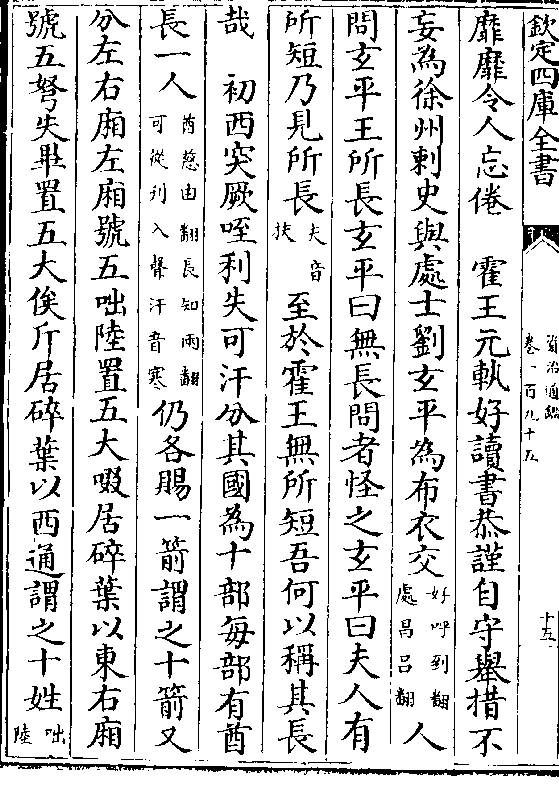 欽定四庫全書
資治通鑑
卷一百九十五
十五
靡靡令人忘倦　霍王元軌好讀書恭謹自守舉措不
妄為徐州刺史與處士劉玄平為布衣交好呼到翻處昌呂翻人
問玄平王所長玄平曰無長問者怪之玄平曰夫人有
所短乃見所長夫音扶至於霍王無所短吾何以稱其長
哉　初西突厥咥利失可汗分其國為十部每部有酋
長一人酋慈由翻長知兩翻可從刋入聲汗音寒仍各賜一箭謂之十箭又
分左右廂左廂號五咄陸置五大啜居碎葉以東右廂
號五弩失畢置五大俟斤居碎葉以西通謂之十姓咄陸